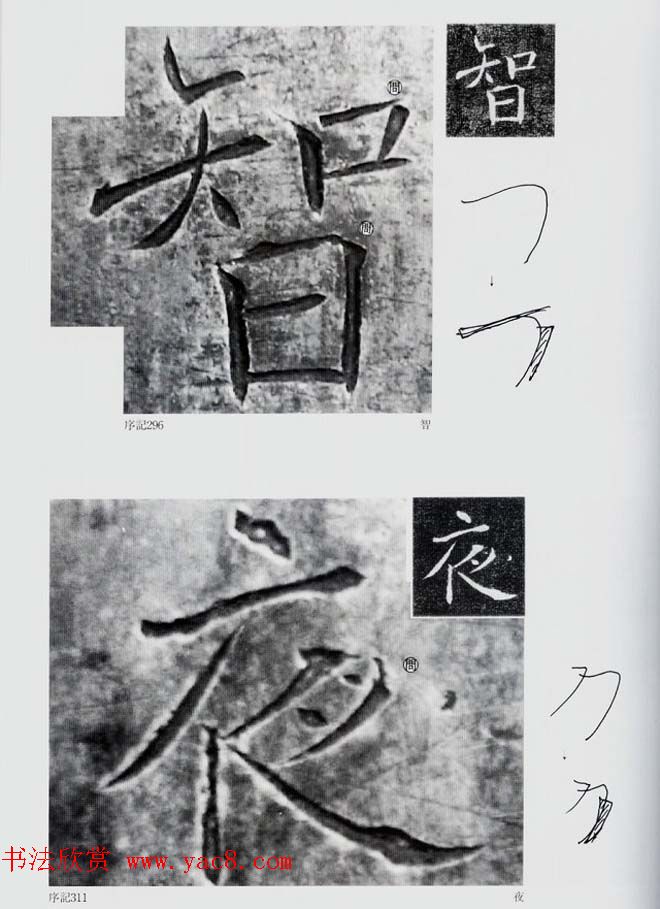 智
智
序記296 智
夜
夜
书法欣赏 www.yac8.com
序記311 夜